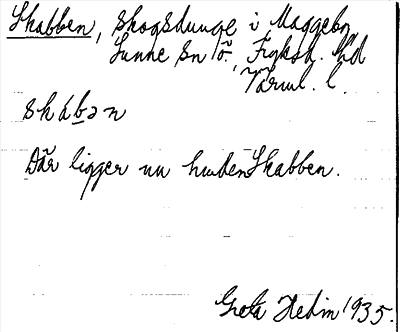 Skabben, skogsdunge i Maggebn,
Sunne sn Ö., Fryksd. hd
Värml. l.
skábən
Där ligger nu hunden Skabben.
Greta Hedin 1935.